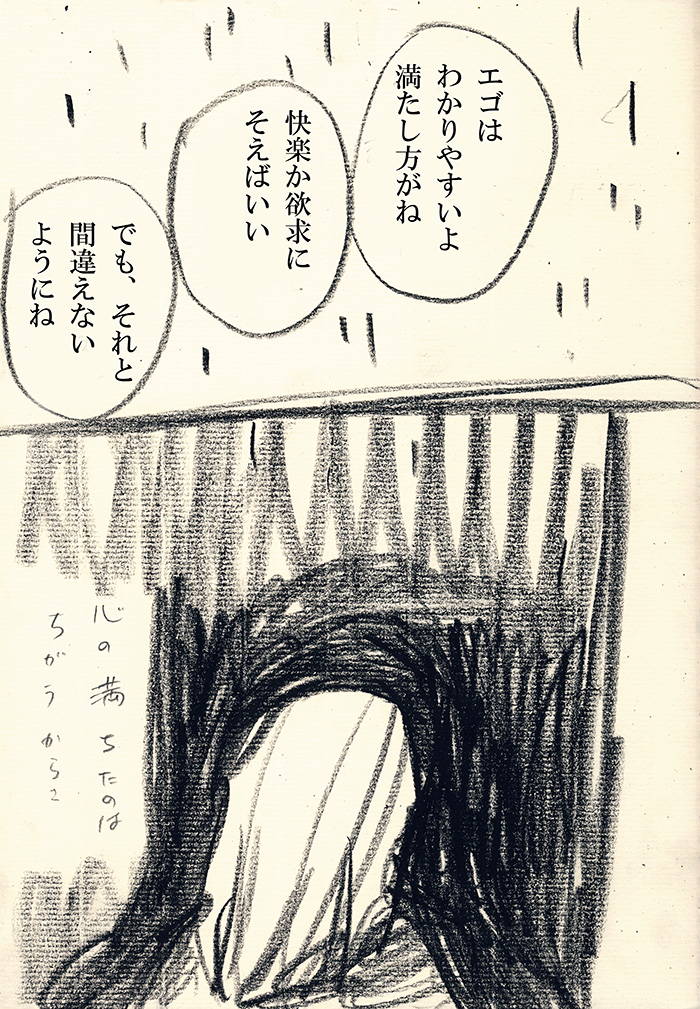 エゴは
わかりやすいよ
満たし方がね
快楽か欲求に
そえばいい
でも、それと
間違えない
ようにね
心の満ちたのは
ちがうから